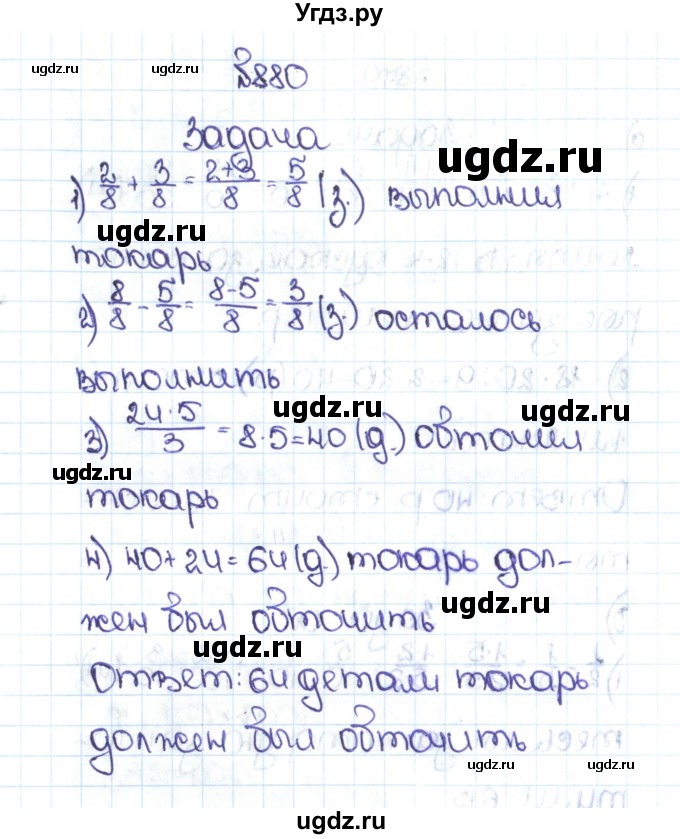 Угдз.ру
ugdz.ru ugdz.ru
№880
Задача
ugdz.ru
1) 2/8 + 3/8 = 2+3/8 = 5/8 (з.) выполнил
ugdz.ru
токарь
2) 8/8 - 5/8 = 8-5/8 = 3/8 (з.) осталось
выполнить
ugdz.ru ugdz.ru
3) 24·5/3 = 8·5=40 (д.) обточил
ugdz.ru
токарь
4) 40+24=64(д.) токарь дол-
ugdz.ru
жен был обточить
ugdz.ru
Ответ: 64 детали токарь
должен был обточить
ugdz.ru ugdz.ru
ugdz.ru